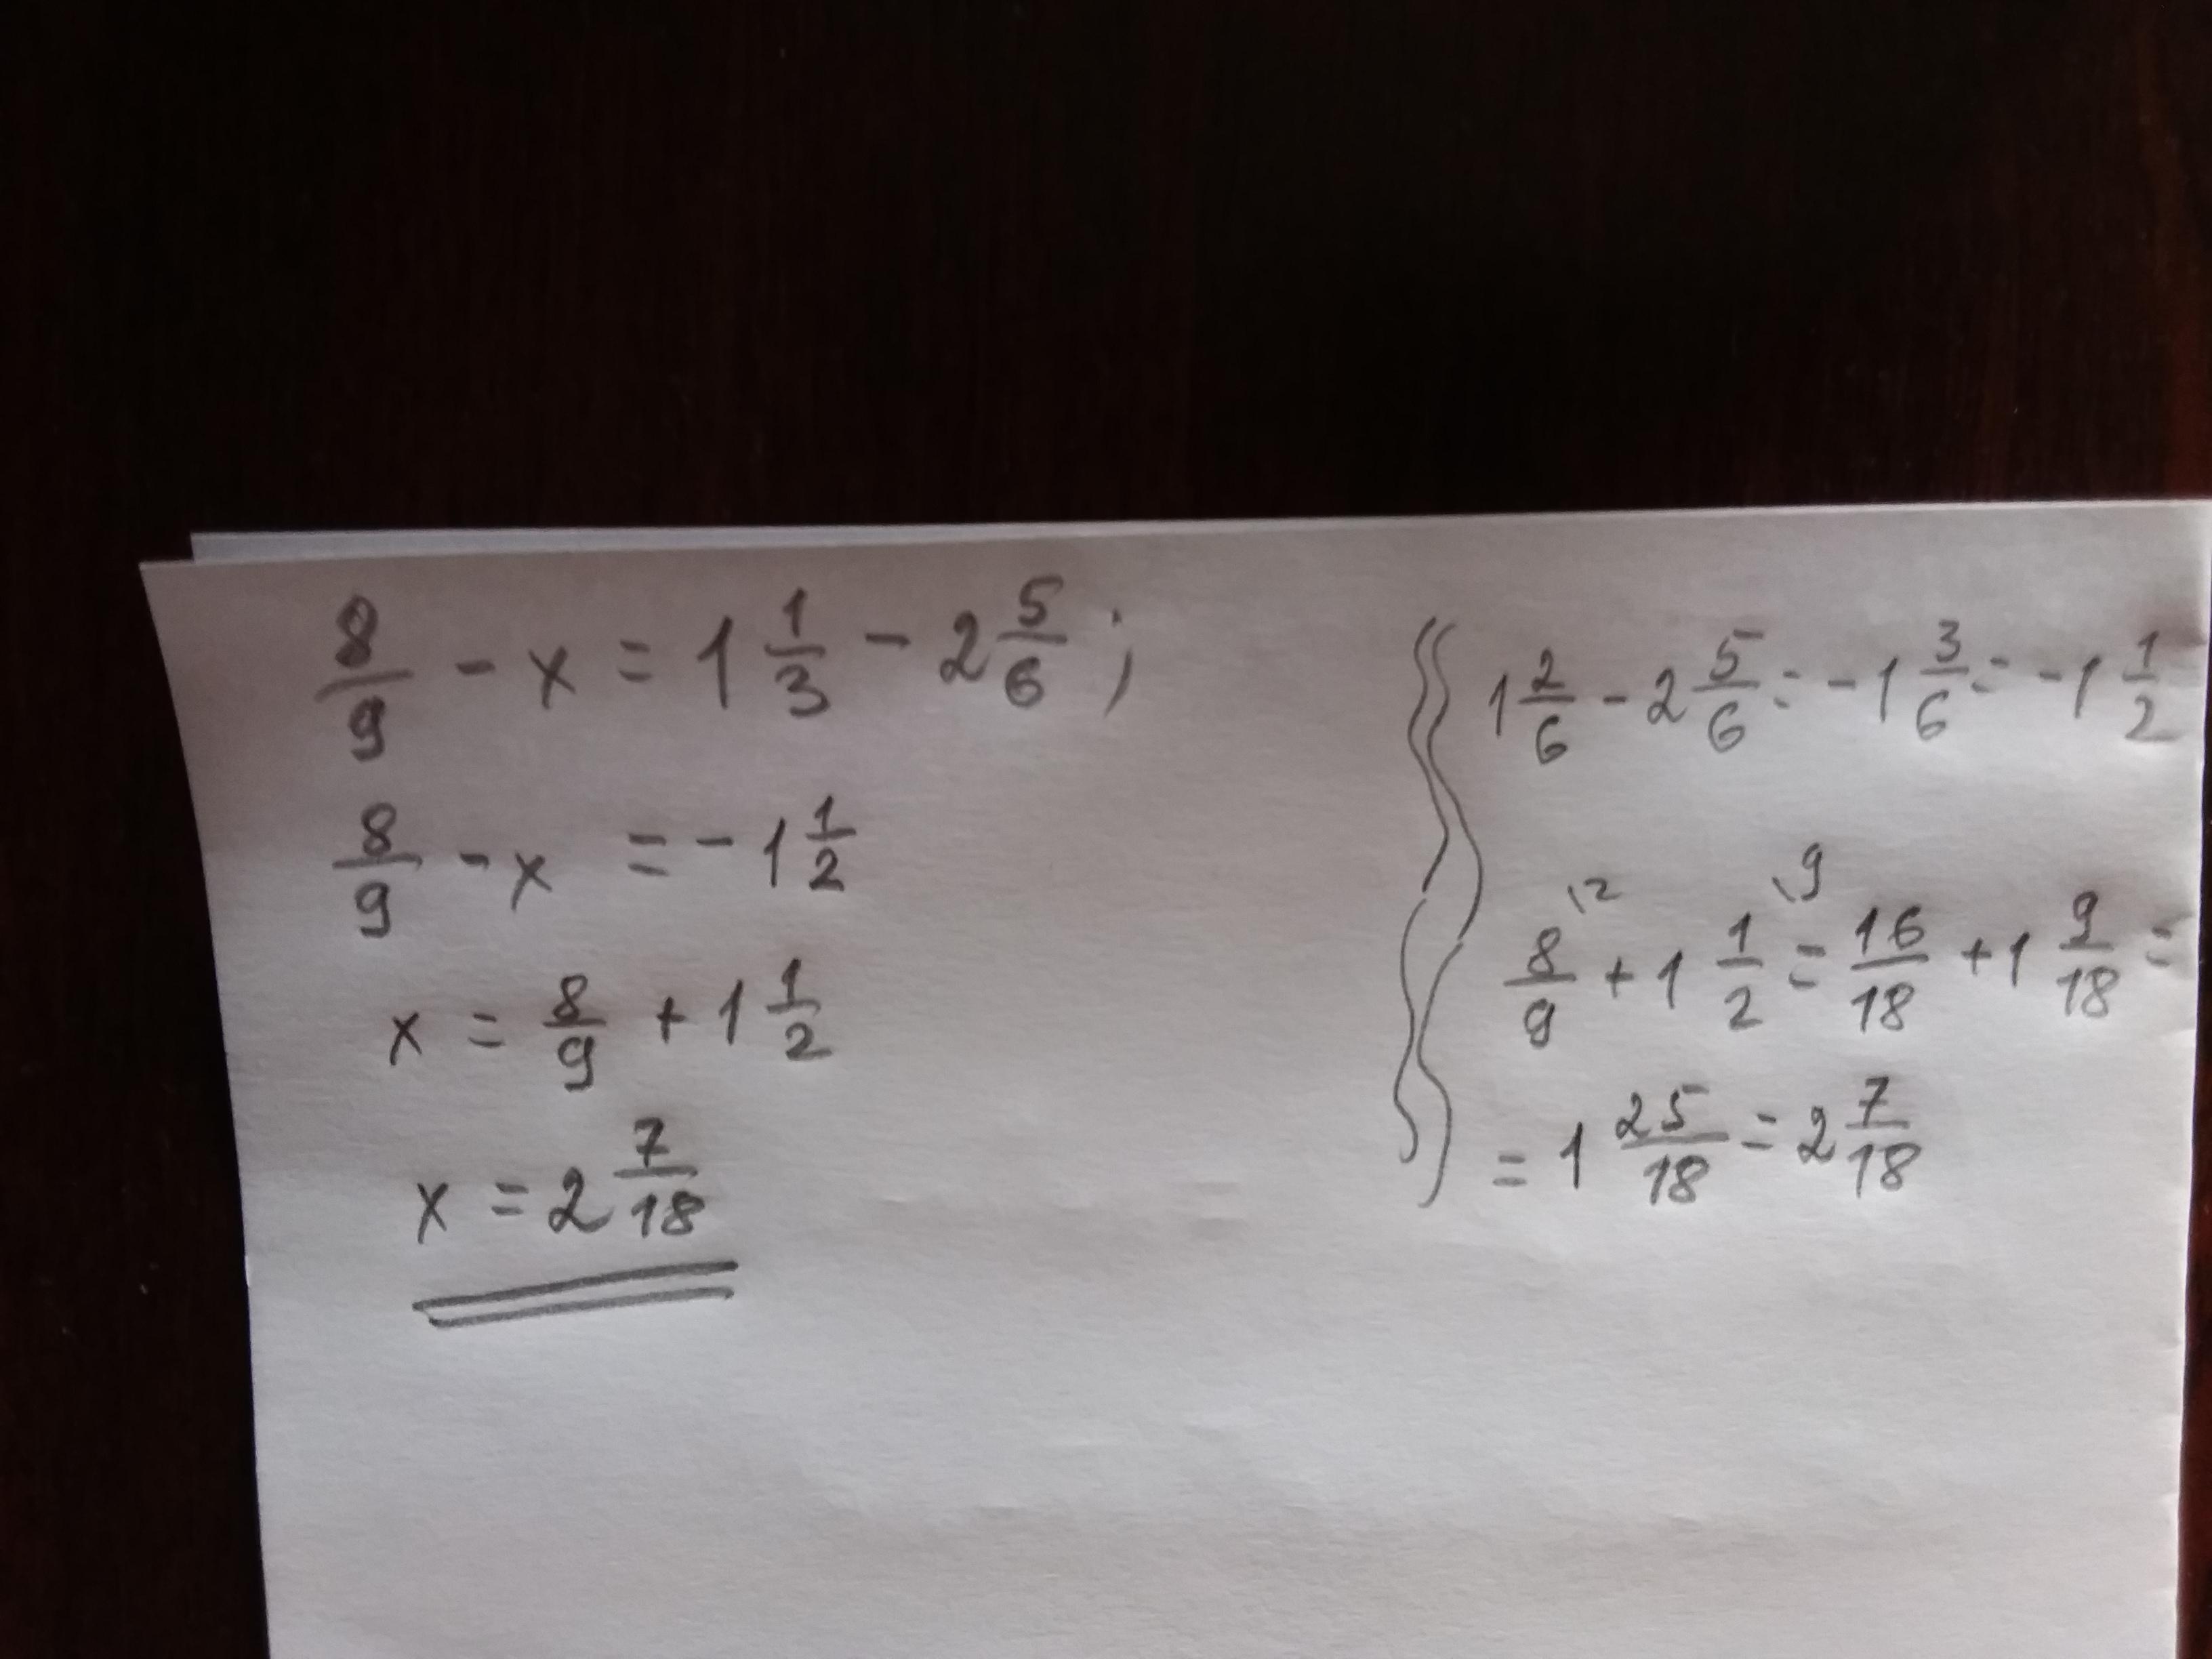 8/9 - x = 1 1/3 - 2 5/6 ;
8/9 - x = - 1 1/2
x = 8/9 + 1 1/2
x = 2 7/18
1 2/6 - 2 5/6 = - 1 3/6 = - 1 1/2
8/9 \2 + 1 1/2 \9 = 16/18 + 1 9/18 =
= 1 25/18 = 2 7/18